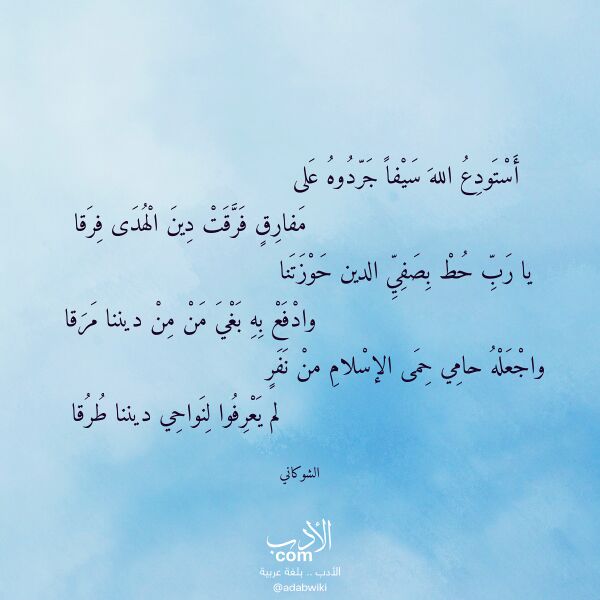 أَسْتَودِعُ اللهَ سَيْفاً جَرّدُوهُ عَلى
مَفارِقٍ فَرَّقَتْ دِينَ الْهُدَى فِرَقا
يا رَبِّ حُطْ بِصَفِيِّ الدين حَوْزَتَنا
وادْفَعْ بِهِ بَغْيَ مَنْ مِنْ ديننا مَرَقا
واجْعَلْهُ حامِي حِمَى الإسْلامِ منْ نَفَرٍ
لم يَعْرِفُوا لِنَواحِي ديننا طُرُقا
الشوكاني
الأدب
com
الأدب .. بلغة عربية
@adabwiki